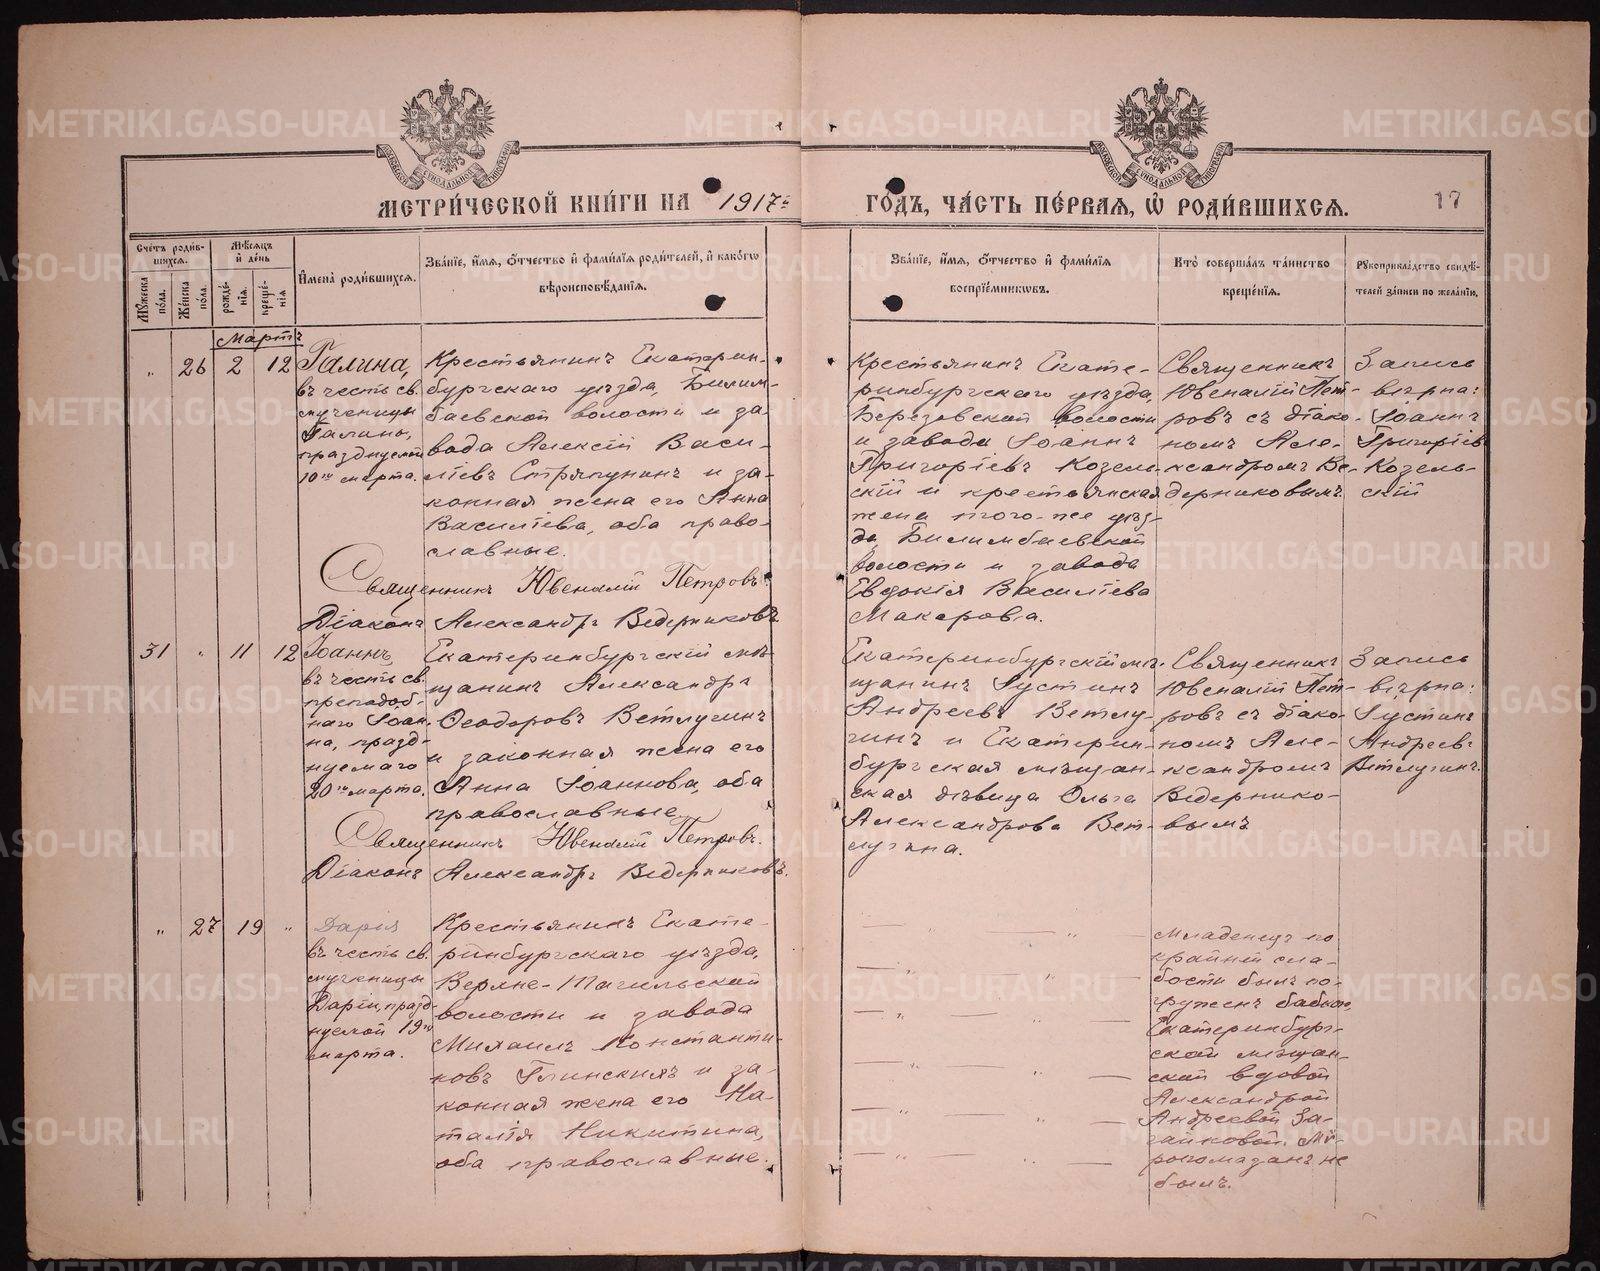 МЕТРИ́ЧЕСКОЙ КНИ́ГИ НА 1917й
ГО́ДЪ, ЧА́СТЬ ПЕ́РВАЯ, Ѡ РОДИ́ВШИХСЯ.
17
Счетъ роди́вшихся.
Му́жеска по́ла.
Же́нска по́ла.
Мѣ́сяцъ и де́нь
рожде́нія.
креще́нія
Имена̀ роди́вшихся.
Зва́нїе, и́мя, ѻ́тчество и фами́лїя роди́телей, и како́гѡ
вѣроисповѣ́данїя.
Зва́нїе, и́мя, ѻ́тчество и фами́лїя
воспрїе́мникѡвъ.
Кто̀ соверша́лъ та́инство
креще́нїя.
Рукоприкла́дство свидѣ́-
телей за́писи по жела́нїю.
Мартъ
„ 26 2 12
Галина,
въ честь св.
мученицы
Галины,
празднуемой
10го марта.
Крестьянинъ Екатерин-
бургскаго уѣзда, Билим-
баевской волости и за-
вода Алексій Васи-
ліевъ Стряпунинъ и за-
конная жена его Анна
Василіева, оба право-
славные.
Священникъ Ювеналій Петровъ.
Діаконъ Александръ Ведерниковъ.
Крестьянинъ Екате-
ринбургскаго уѣзда,
Березовской волости
и завода Іоаннъ
Григоріевъ Козель-
скій и крестьянская
жена того-же уѣз-
да, Билимбаевской
волости и завода
Евдокія Василіева
Макарова.
Священникъ
Ювеналій Пет-
ровъ съ діако-
номъ Але-
ксандромъ Ве-
дерниковымъ
Запись
вѣрна:
Іоаннъ
Григоріевъ
Козель-
скій
31 „ 11 12
Іоаннъ,
въ честь св.
преподоб-
наго Іоан-
на, празд-
нуемаго
20го марта.
Екатеринбургскій мѣ-
щанинъ Александръ
Ѳеодоровъ Ветлугинъ
и законная жена его
Анна Іоаннова, оба
православные.
Священникъ Ювеналій Петровъ.
Діаконъ Александръ Ведерниковъ.
Екатеринбургскій мѣ-
щанинъ Іустинъ
Андреевъ Ветлу-
гинъ и Екатерин-
бургская мѣщан-
ская дѣвица Ольга
Александрова Вет-
лугина.
Священникъ
Ювеналій Пет-
ровъ съ діако-
номъ Але-
ксандромъ
Ведернико-
вымъ
Запись
вѣрна:
Іустинъ
Андреевъ
Ветлугинъ.
„ 27 19 „
Дарія
въ честь св.
мученицы
Даріи, празд-
нуемой 19го
марта.
Крестьянинъ Екате-
ринбургскаго уѣзда,
Верхне-Тагильской
волости и завода
Михаилъ Константи-
новъ Глинскихъ и за-
конная жена его На-
талія Никитина,
оба православные.
Младенецъ по
крайней сла-
бости былъ по-
груженъ бабкою,
Екатеринбург-
ской мѣщан-
ской вдовой
Александрой
Андреевой За-
гайновой. Мѵ-
ропомазанъ не
былъ.
METRIKI.GASO-URAL.RU